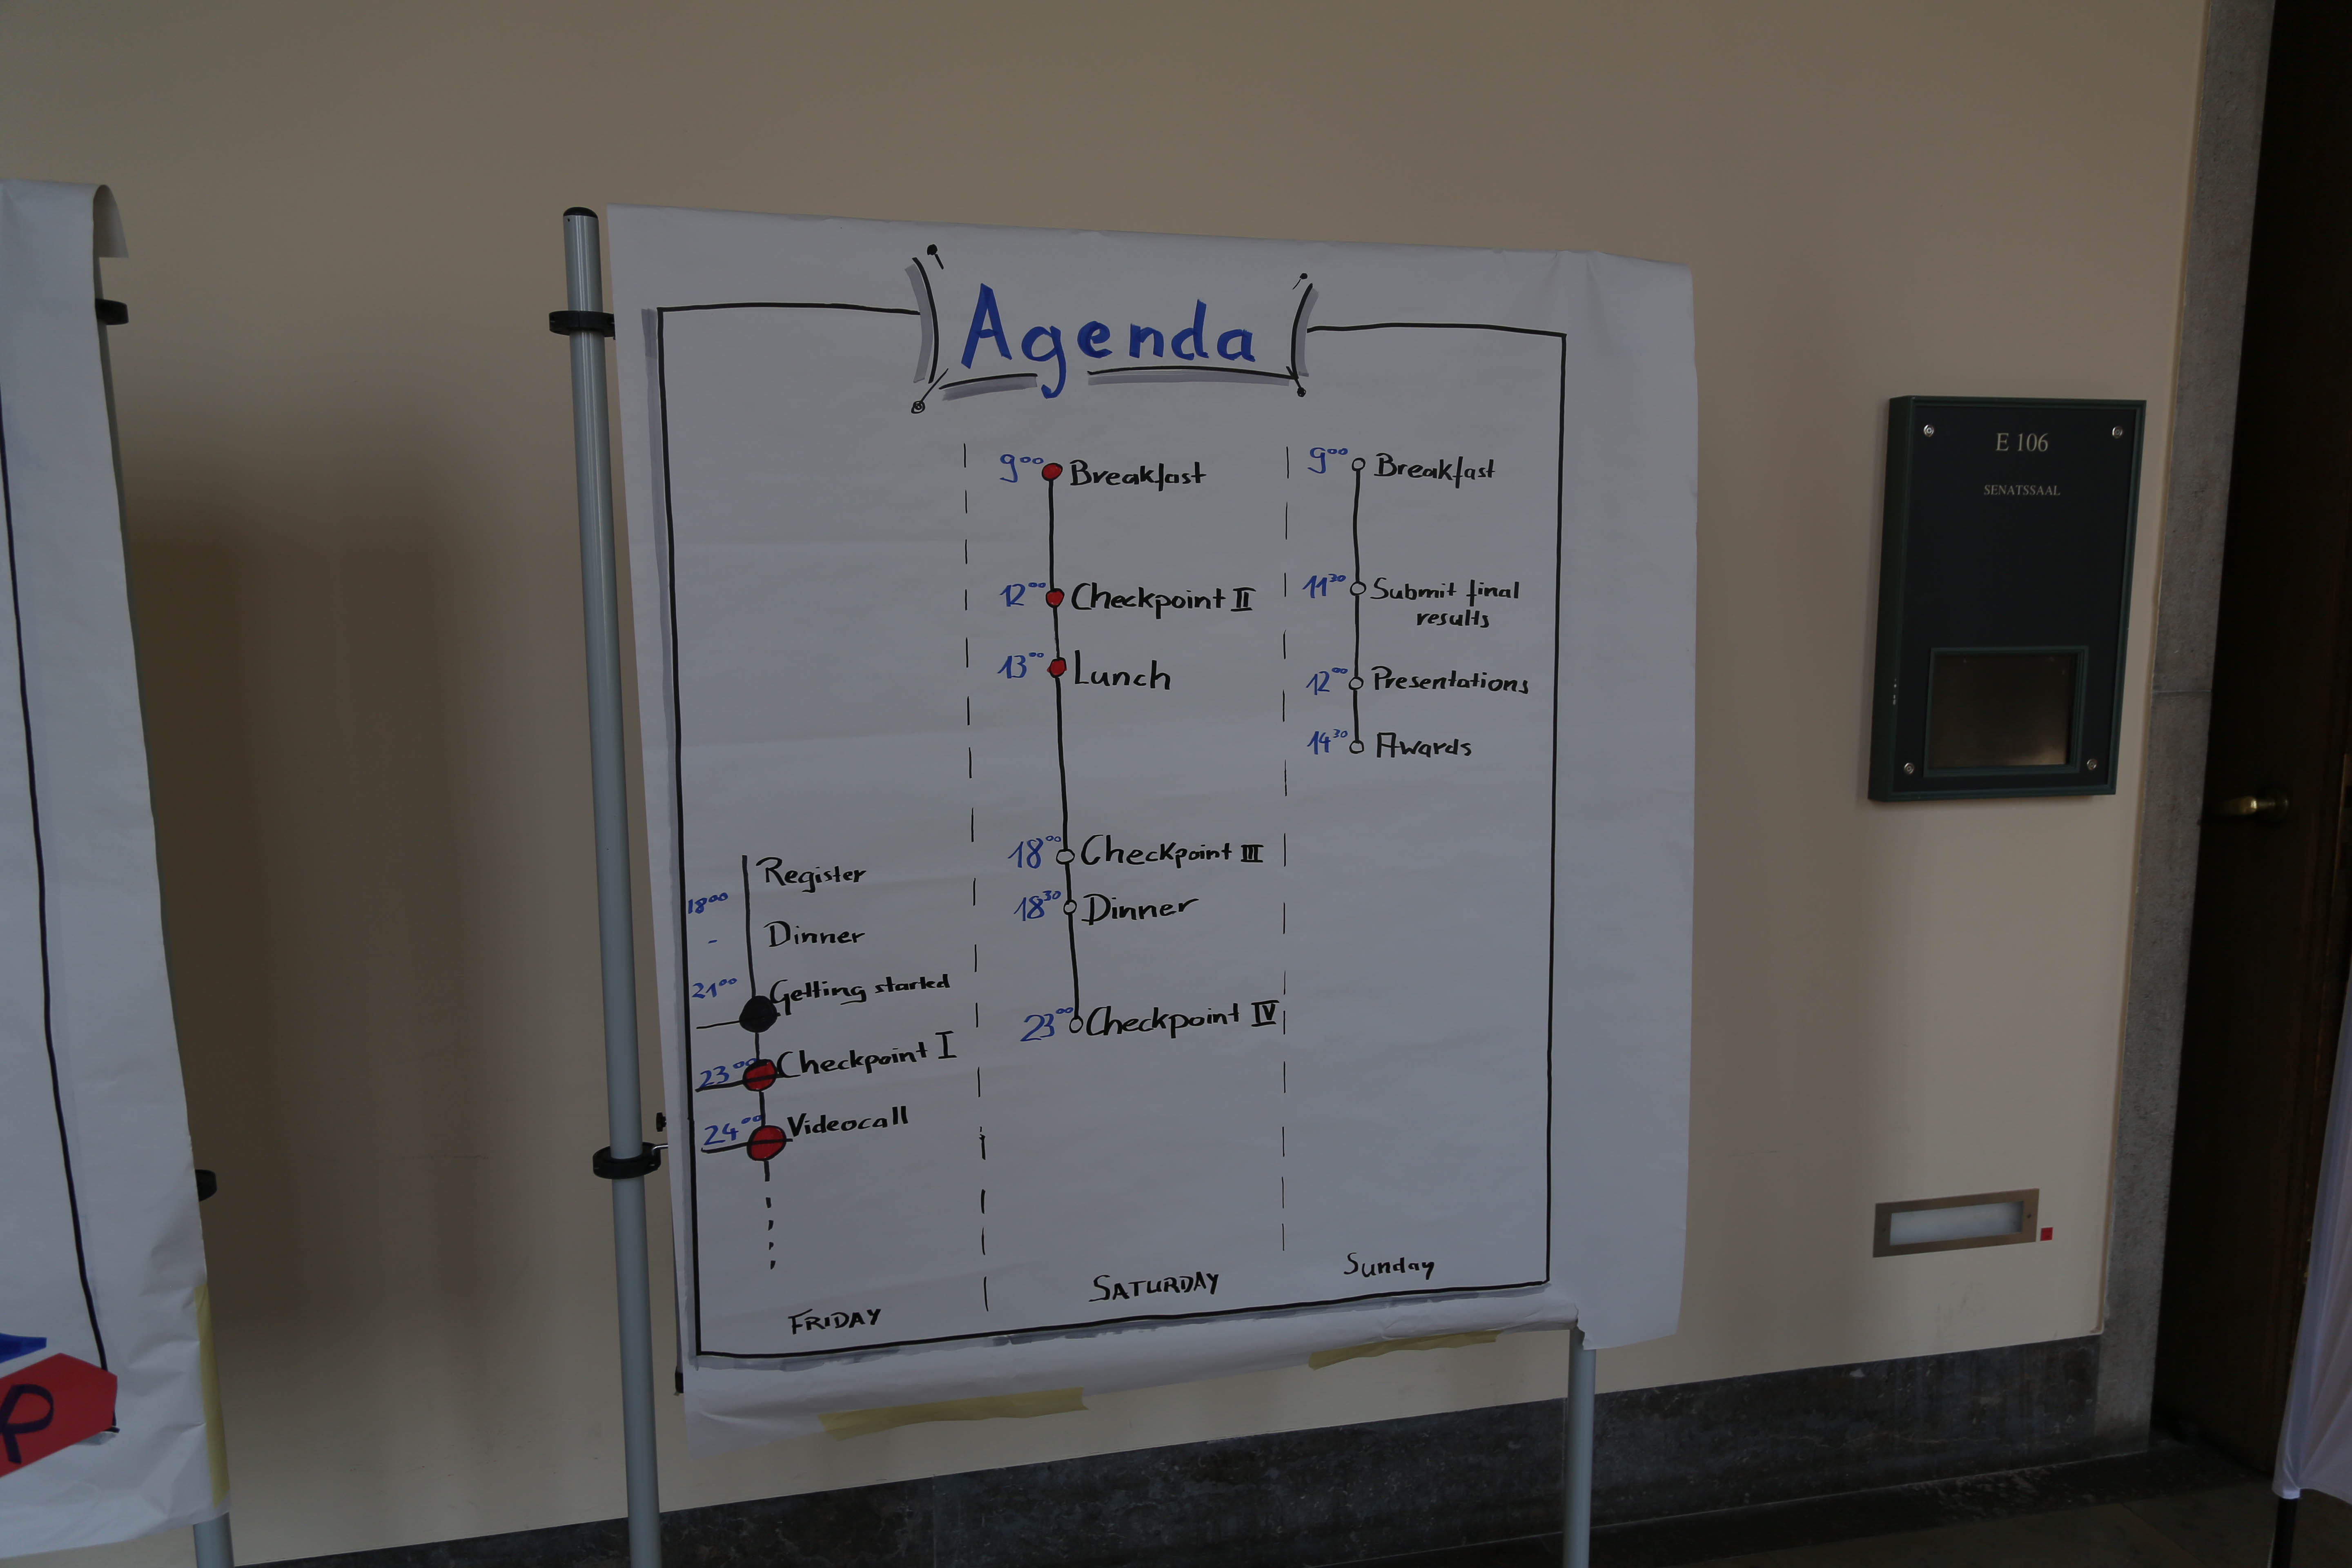 Agenda
18⁰⁰ - 21⁰⁰
Register
Dinner
Getting started
23⁰⁰ Checkpoint I
24⁰⁰ Videocall
FRIDAY
9⁰⁰ Breakfast
12⁰⁰ Checkpoint II
13⁰⁰ Lunch
18⁰⁰ Checkpoint III
18³⁰ Dinner
23⁰⁰ Checkpoint IV
SATURDAY
9⁰⁰ Breakfast
11³⁰ Submit final
results
12⁰⁰ Presentations
14³⁰ Awards
Sunday
E 106
SENATSSAAL